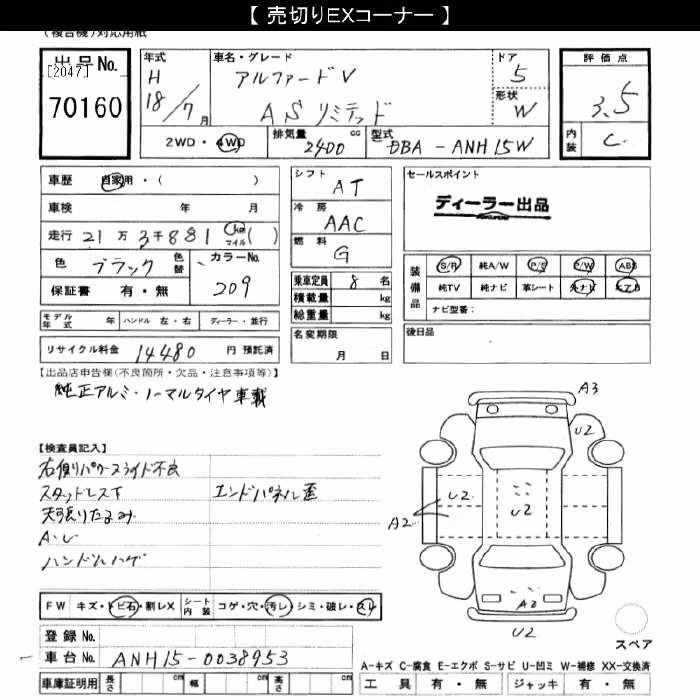 【 売切りEXコーナー 】
(複合機)対応用紙
出品No. [2047] 70160
年式 H 18/7月
車名・グレード アルファードV AS リミテッド
ドア 5
形状 W
評価点 3.5
内装 C
2WD・4WD 排気量 2400 cc 型式 DBA-ANH15W
車歴 自家用・( )
車検 年 月
走行 21万3千881 km マイル ( )
色 ブラック 色替 カラーNo. 209
保証書 有・無
シフト AT
冷房 AAC
燃料 G
乗車定員 8名
積載量 kg
総重量 kg
セールスポイント
ディーラー出品
装備品 S/R 純A/W P/S P/W ABS
純TV 純ナビ 革シート 夫ナビ エアB
ナビ型番：
モデル年式 年 ハンドル 左・右 ディーラー・並行
名変期限 月 日
後日品
リサイクル料金 14480 円 預託済
【出品店申告欄(不良箇所・欠品・注意事項等)】
純正アルミ・ノーマルタイヤ車載
【検査員記入】
右側パワースライド不良
スタッドレス下 エンドパネル歪
天張りたるみ
A・U
ハンドルハゲ
A3
U2
U2
U2
A2
A3
U2
スペア
FW キズ・トビ石・割レX シート内装 コゲ・穴・汚レ・シミ・破レ・スレ
登録No.
車台No. ANH15-0038953
A-キズ C-腐食 E-エクボ S-サビ U-凹ミ W-補修 XX-交換済
車庫証明用 長さ cm 幅 cm 高さ cm
工具 有・無 ジャッキ 有・無